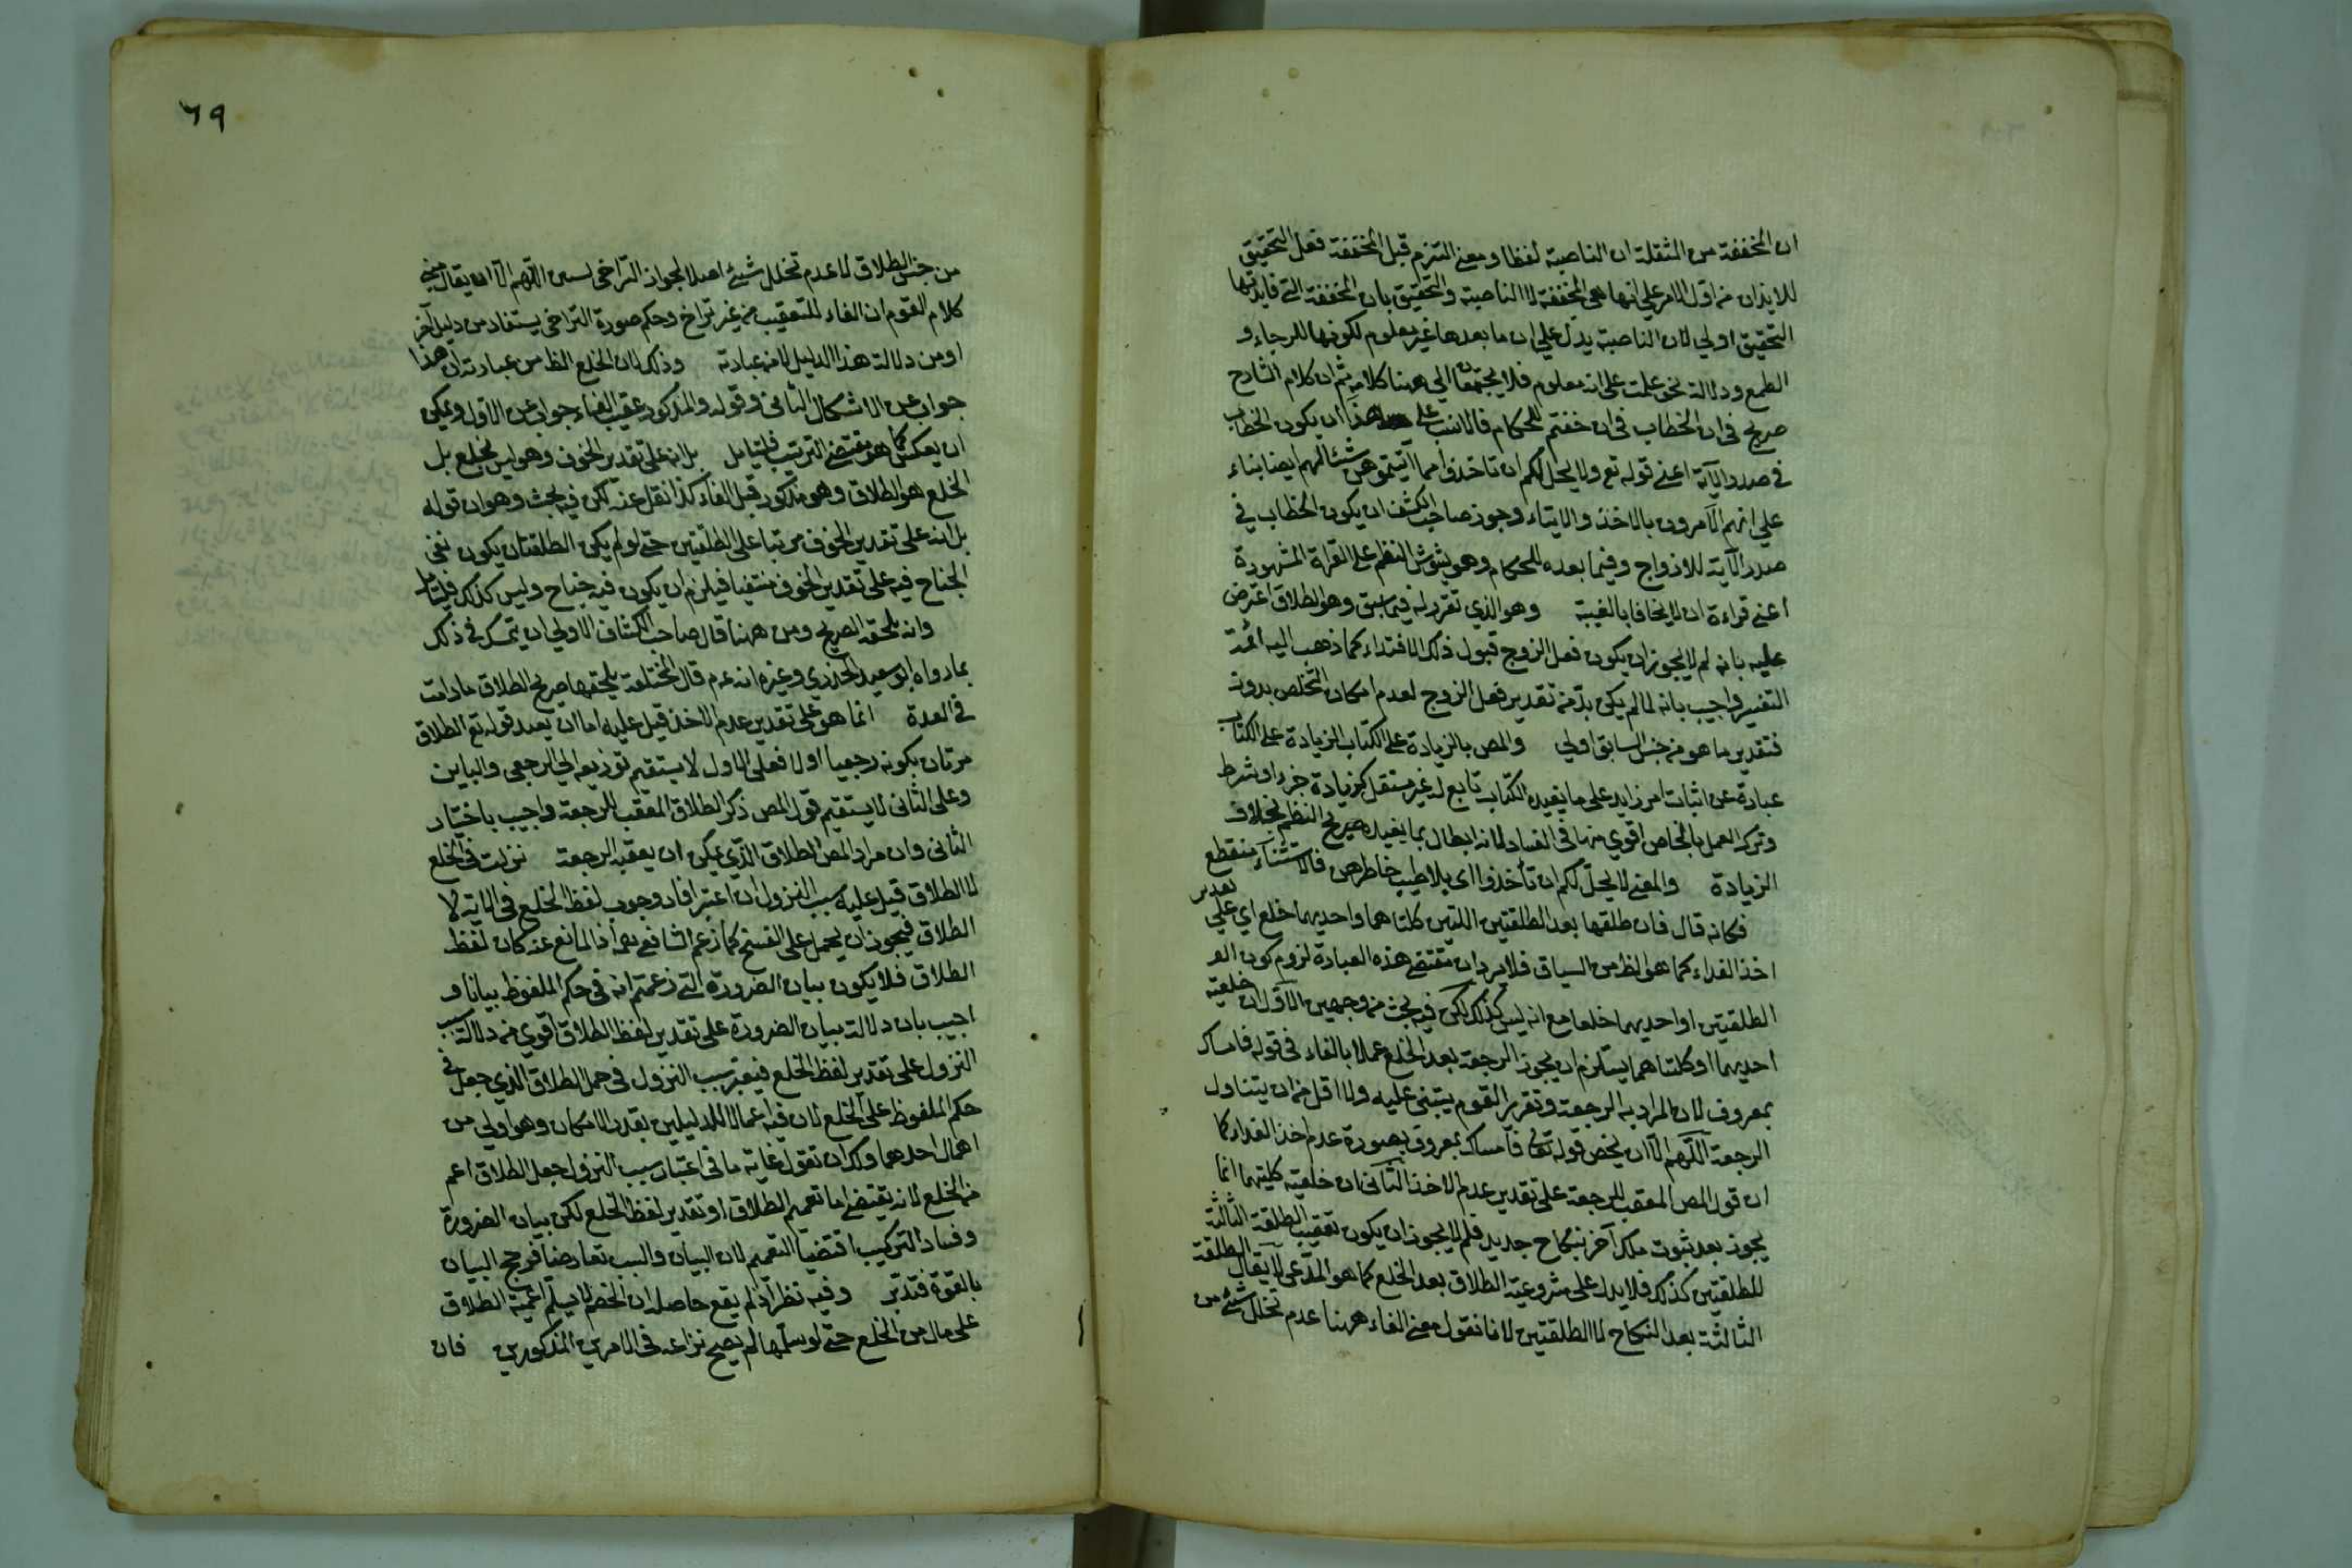 ان المخففة من المثقلة ان الناصبة لفظا ومعنى التزم قبل المخففة فعل التحقيق
للايذان من اول الامر على انها هي المخففة لا الناصبة والتحقيق بان المخففة التي فايدتها
التحقيق اولى لان الناصبة يدل على ان ما بعدها غير معلوم لكونها للرجاء و
الطمع ودلالة نحو علمت على انه معلوم فلا يجتمعان الى هنا كلامه ثم ان كلام الشارح
صريح في ان الخطاب في ان خفتم للحكام فالانسب على هذا ان يكون الخطاب
في صدر الآية اعني قوله تع ولا يحل لكم ان تاخذوا مما اتيتموهن شيئا لهم ايضا بناء
على انهم الآمرون بالاخذ والايتاء وجوز صاحب الكشف ان يكون الخطاب في
صدر الآية للازواج وفيما بعده للحكام وهو يشوش النظم على القراة المشهورة
اعني قراءة ان لا يخافا بالغيبة وهو الذي تقرر له فيما سبق وهو الطلاق اعترض
عليه بانه لم لا يجوز ان يكون فعل الزوج قبول ذلك الافتداء كما ذهب اليه ائمة
التفسير واجيب بانه لما لم يكن بد من تقدير فعل الزوج لعدم امكان التخلص بدونه
فتقدير ما هو من جنس السابق اولى والمص بالزيادة على الكتاب الزيادة على الكتاب
عبارة عن اثبات امر زايد على ما يفيده الكتاب تابع له غير مستقل كزيادة جزء او شرط
وترك العمل بالخاص اقوى منها في الفساد لانه ابطال بما يفيده صريح النظم بخلاف
الزيادة والمعنى لا يحل لكم ان تأخذوا اى بلا طيب خاطرهن فالاستثناء منقطع
فكانه قال فان طلقها بعد الطلقتين اللتين كلتاهما واحديهما خلع اي على تقدير
اخذ الفداء كما هو الظ من السياق فلا يرد ان مقتضى هذه العبارة لزوم كون الو
الطلقتين او احديهما خلعا مع انه ليس كذلك لكن فيه بحث من وجهين الاول ان خلعية
احديهما او كلتاهما يستلزم ان يجوز الرجعة بعد الخلع عملا بالفاء في قوله فامساك
بمعروف لان المراد به الرجعة وتقرير القوم يبتنى عليه ولا اقل من ان يتناول
الرجعة اللهم الا ان يخص قوله تعالى فامساك بمعروف بصورة عدم اخذ الفداء كما
ان قول المص المعقب للرجعة على تقدير عدم الاخذ الثاني ان خلعية كليتهما انما
يجوز بعد ثبوت ملك آخر بنكاح جديد فلم لا يجوز ان يكون تعقيب الطلقة الثالثة
للطلقتين كذلك فلا يدل على مشروعية الطلاق بعد الخلع كما هو المدعى لا يقال الطلقة
الثالثة بعد النكاح لا الطلقتين لانا نقول معنى الفاء ههنا عدم تخلل شئ من
٦٩
من جنس الطلاق لا عدم تخلل شئ اصلا لجواز التراخى اللهم الا ان يقال معنى
كلام القوم ان الفاء للتعقيب من غير تراخ وحكم صورة التراخى يستفاد من دليل آخر
او من دلالة هذا الدليل لا من عبارته وذلك لان الخلع الظ من عبارته ان هذا
جواب عن الاشكال الثانى وقوله والمذكور عقيب الفاء جواب عن الاول ويمكن
ان يعكس كما هو مقتضى الترتيب فليتامل بل انه على تقدير الخوف وهو ليس بخلع بل
الخلع هو الطلاق وهو مذكور قبل الفاء كذا نقل عنه لكن فيه بحث وهو ان قوله
بل انه على تقدير الخوف مرتبا على الطلقتين حتى لو لم يكن الطلقتان يكون نفى
الجناح فيه على تقدير الخوف منتفيا فيلزم ان يكون فيه جناح وليس كذلك فليتامل
وانه يلحقه الصريح ومن ههنا قال صاحب الكشاف الاولى ان يتمسك في ذلك
بما رواه ابو سعيد الخدري وغيره انه عم قال المختلعة يلحقها صريح الطلاق ما دامت
في العدة انما هو على تقدير عدم الاخذ قيل عليه اما ان يعد قوله تع الطلاق
مرتان بكونه رجعيا او لا فعلى الاول لا يستقيم توزيعه الى الرجعي والباين
وعلى الثانى لا يستقيم قول المص ذكر الطلاق المعقب للرجعة واجيب باختيار
الثانى وان مراد المص الطلاق الذي يمكن ان يعقبه الرجعة نزلت في الخلع
لا الطلاق قيل عليه سبب النزول ان اعتبر افاد وجوب لفظ الخلع في الاية لا
الطلاق فيجوز ان يحمل على الفسخ كما زعم الشافعي رحمه اذ المانع عنه كان لفظ
الطلاق فلا يكون بيان الضرورة التي زعمتم انه في حكم الملفوظ بيانا و
اجيب بان دلالة بيان الضرورة على تقدير لفظ الطلاق اقوى من دلالة سبب
النزول على تقدير لفظ الخلع فيعتبر سبب النزول في حمل الطلاق الذي جعل في
حكم الملفوظ على الخلع لان فيه اعمالا للدليلين بقدر الامكان وهو اولى من
اهمال احدهما ولك ان تقول غاية ما في اعتبار سبب النزول جعل الطلاق اعم
من الخلع لانه يقتضي اما تعميم الطلاق او تقدير لفظ الخلع لكن بيان الضرورة
وفساد التركيب اقتضيا التعميم لان البيان والسبب تعارضا فرجح البيان
بالقوة فتدبر وفيه نظر اذ لم يقع حاصله ان الخصم لا يسلم اعمية الطلاق
على مال من الخلع حتى لو سلمها لم يصح نزاعه في الامرين المذكورين فان